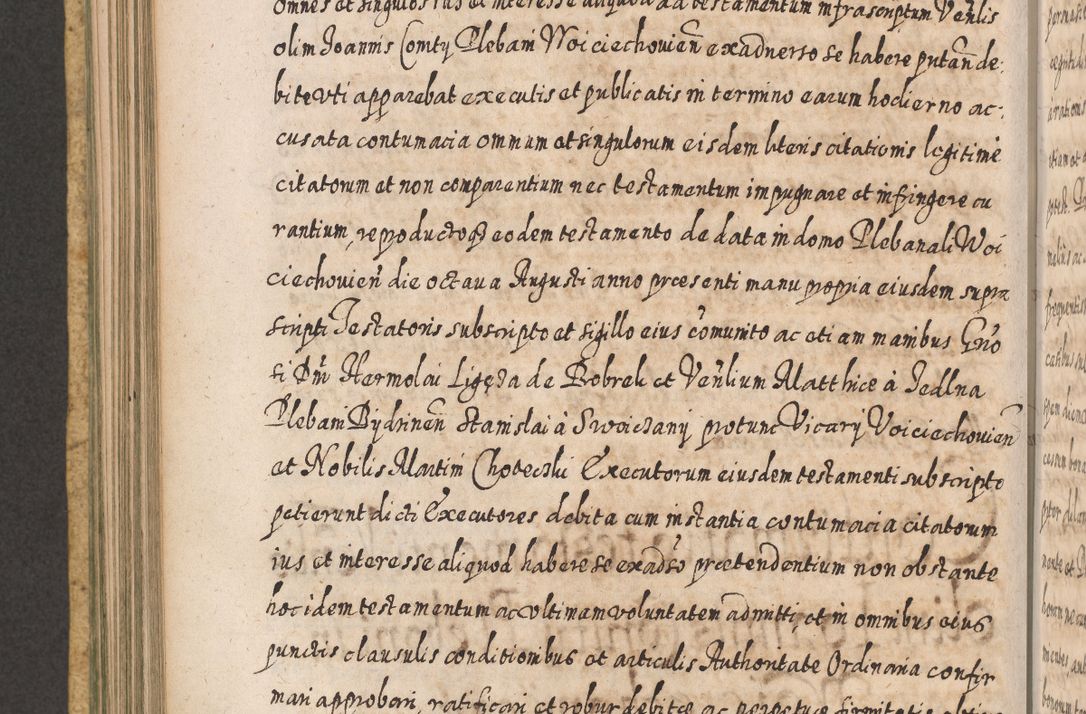 omnes et singulos ius et interesse aliquod ad testamentum infrascriptum Ven̄lis
olim Joannis Comty Plebani Woiciechovien̄ ex adverso se habere putan̄ de:
bite uti apparebat executis et publicatis in termino earum hodierno ac:
cusata contumacia omnium et singulorum eisdem literis citationis legitime
citatorum et non comparentium nec testamentum impugnare et infringere cu
rantium, reproductoq̨ eodem testamento de data in domo Plebanali Woi
ciechovien̄ die octava Augusti anno præsenti manu propria eiusdem supra
scripti Testatoris subscripto et sigillo eius com̄unito ac etiam manibus Gn̄o
si Dn̄i Hermolai Ligęza de Bobrek et Ven̄lium Matthiæ à Jedlna
Plebani Bydlinen̄ Stanislai à Swoiczany protunc Vicarij Voiciechovien̄
et Nobilis Martini Chotecki Executorum eiusdem testamenti subscripto
petierunt dicti Executores debita cum instantia contumacia citatorum
ius et interesse aliquod habere se exad̄so prætendentium non obstante
hoc idem testamentum ac ultimam voluntatem admitti, et in omnibus eius
punctis clausulis conditionibus et articulis Authoritate Ordinaria confir
mari approbari, ratificari et robur debitæ ac perpetuæ firmitatis